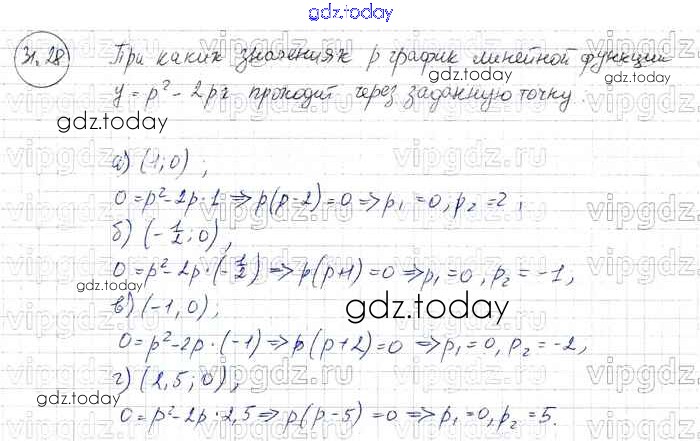 gdz.today
31.28 При каких значениях p график линейной функции
y = p² - 2px проходит через заданную точку.
gdz.today
gdz.today
а) (1; 0);
0 = p² - 2p · 1 ⇒ p(p - 2) = 0 ⇒ p₁ = 0, p₂ = 2;
б) (-1/2; 0);
0 = p² - 2p · (-1/2) ⇒ p(p + 1) = 0 ⇒ p₁ = 0, p₂ = -1,
gdz.today
в) (-1, 0);
gdz.today
0 = p² - 2p · (-1) ⇒ p(p + 2) = 0 ⇒ p₁ = 0, p₂ = -2,
г) (2,5; 0);
gdz.today
0 = p² - 2p · 2,5 ⇒ p(p - 5) = 0 ⇒ p₁ = 0, p₂ = 5.
gdz.today